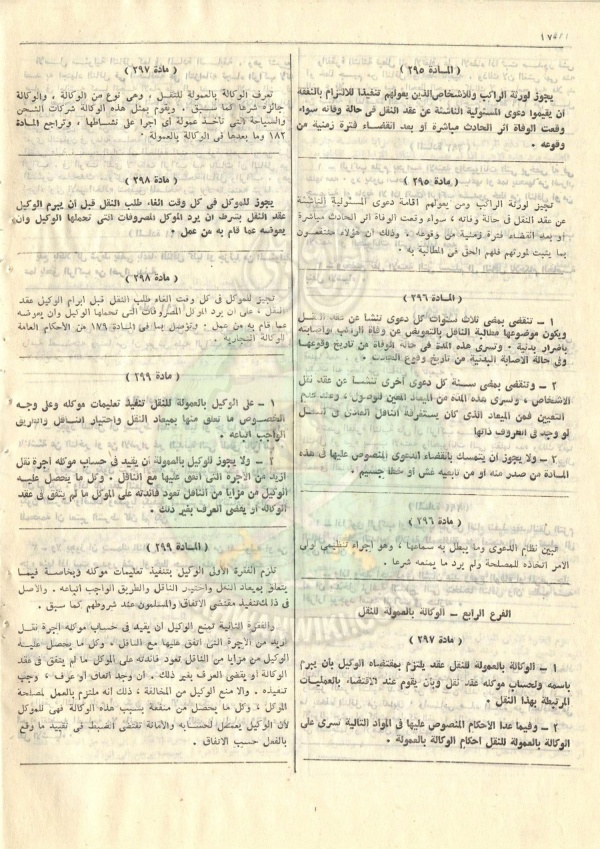 ١٧
( المادة ٢٩٥ )
يجوز لورثة الراكب وللأشخاص الذين يعولهم تنفيذا للالتزام بالنفقة
أن يقيموا دعوى المسئولية الناشئة عن عقد النقل في حالة وفاته سواء
وقعت الوفاة اثر الحادث مباشرة أو بعد انقضاء فترة زمنية من
وقوعه .
( مادة ٢٩٥ )
تجيز لورثة الراكب ومن يعولهم اقامة دعوى المسئولية الناشئة
عن عقد النقل في حالة وفاته ، سواء وقعت الوفاة اثر الحادث مباشرة
أو بعد انقضاء فترة زمنية من وقوعه . وذلك ان هؤلاء
بما يثبت لمورثهم فلهم الحق في المطالبة به .
( المادة ٢٩٦ )
١ – تنقضي بمضي ثلاث سنوات كل دعوى تنشأ عن عقد النقل
ويكون موضوعها مطالبة الناقل بالتعويض عن وفاة الراكب أو اصابته
بأضرار بدنية . وتسرى هذه المدة في حالة الوفاة من تاريخ وقوعها
وفي حالة الاصابة البدنية من تاريخ وقوع الحادث .
٢ – وتنقضي بمضي سنة كل دعوى أخرى تنشأ عن عقد نقل
الأشخاص ، وتسرى هذه المدة من الميعاد المعين للوصول ، وعند عدم
التعيين فمن الميعاد الذي كان يستغرقه الناقل العادى في النقل
لو وجد في الظروف ذاتها
٣ – ولا يجوز أن يتمسك بانقضاء الدعوى المنصوص عليها في هذه
المادة من صدر منه أو من تابعيه غش أو خطأ جسيم .
( مادة ٢٩٦ )
تبين نظام الدعوى وما يبطل به سماعها ، وهو اجراء تنظيمى لولى
الأمر اتخاذه للمصلحة ولم يرد ما يمنعه شرعا .
الفرع الرابع – الوكالة بالعمولة للنقل
( مادة ٢٩٧ )
١ – الوكالة بالعمولة للنقل عقد يلتزم بمقتضاه الوكيل بأن يبرم
باسمه ولحساب موكله عقد نقل وبأن يقوم عند الاقتضاء بالعمليات
المرتبطة بهذا النقل .
٢ – وفيما عدا الأحكام المنصوص عليها في المواد التالية تسرى على
الوكالة بالعمولة للنقل أحكام الوكالة بالعمولة .
( مادة ٢٩٧ )
تعرف الوكالة بالعمولة للنقل ، وهي نوع من الوكالة ، والوكالة
جائزة شرعا كما سبق . ويقوم بمثل هذه الوكالة شركات الشحن
والسياحة التي تأخذ عمولة أى أجرا على نشاطها ، وتراجع المادة
١٨٢ وما بعدها في الوكالة بالعمولة .
( مادة ٢٩٨ )
يجوز للموكل في كل وقت الغاء طلب النقل قبل أن يبرم الوكيل
عقد النقل بشرط أن يرد الموكل المصروفات التي تحملها الوكيل وأن
يعوضه عما قام به من عمل .
( مادة ٢٩٨ )
تجيز للموكل في كل وقت الغاء طلب النقل قبل ابرام الوكيل عقد
النقل ، على أن يرد الموكل المصروفات التي تحملها الوكيل وأن يعوضه
عما قام به من عمل . بما في المادة ١٧٦ من الأحكام العامة
الوكالة التجارية .
( مادة ٢٩٩ )
١ – على الوكيل بالعمولة للنقل تنفيذ تعليمات موكله وعلى وجه
الخصوص ما تعلق منها بميعاد النقل واختيار الناقل والطريق
الواجب اتباعه .
٢ – ولا يجوز للوكيل بالعمولة أن يقيد في حساب موكله أجرة نقل
أزيد من الأجرة التي اتفق عليها مع الناقل . وكل ما يحصل عليه
الوكيل من مزايا من الناقل تعود فائدته على الموكل ما لم يتفق في عقد
الوكالة أو يقضى العرف بغير ذلك .
( المادة ٢٩٩ )
تلزم الفقرة الأولى الوكيل بتنفيذ تعليمات موكله وبخاصة فيما
يتعلق بميعاد النقل واختيار الناقل والطريق الواجب اتباعه . والأصل
في ذلك تنفيذ مقتضى الاتفاق والمسلمون عند شروطهم كما سبق .
والفقرة الثانية تمنع الوكيل أن يقيد في حساب موكله أجرة نقل
أزيد من الأجرة التي اتفق عليها مع الناقل . وكل ما يحصل عليه
الوكيل من مزايا من الناقل تعود فائدته على الموكل ما لم يتفق في عقد
الوكالة أو يقضى العرف بغير ذلك . أن وجد اتفاق أو عرف ، وجب
تنفيذه . والا منع الوكيل من المخالفة ، ذلك أنه ملتزم بالعمل لمصلحة
الموكل ، وكل ما يحصل من منفعة بسبب هذه الوكالة فهي للموكل
لأن الوكيل يعمل لحسابه والأمانة تقتضى الضبط في تقييد ما وقع
بالفعل حسب الاتفاق .